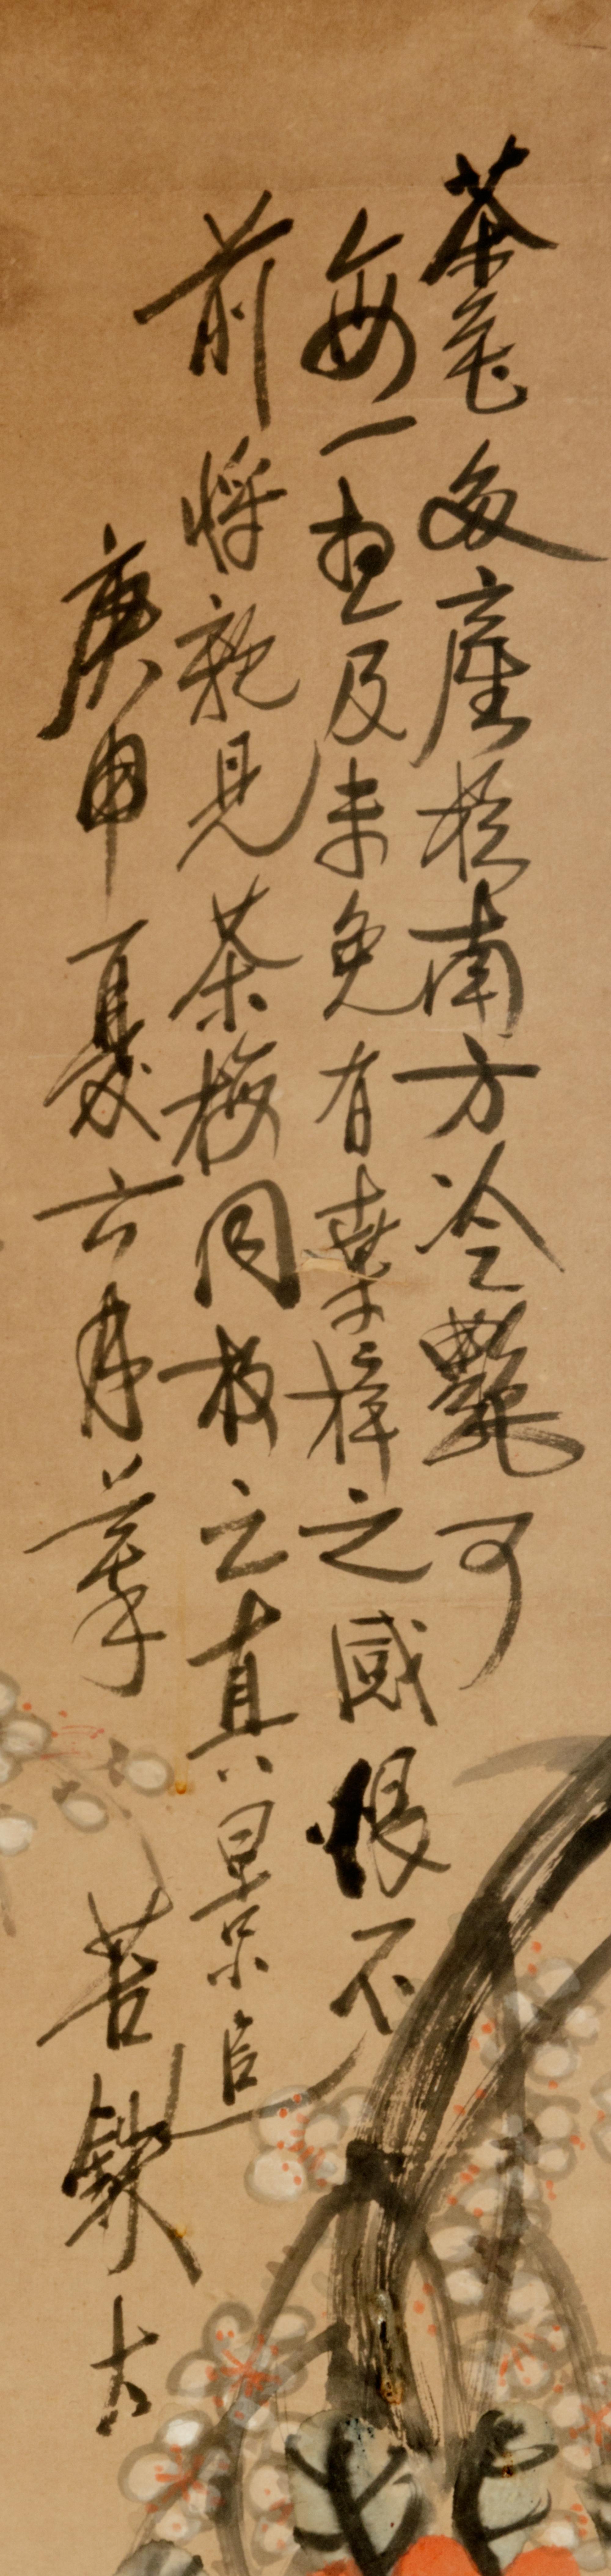 茶花多產於南方冷艷可
每一想及未免有桑梓之感恨不
前將親見茶梅同枝之真景追
庚申夏六月摹 苦鐵大